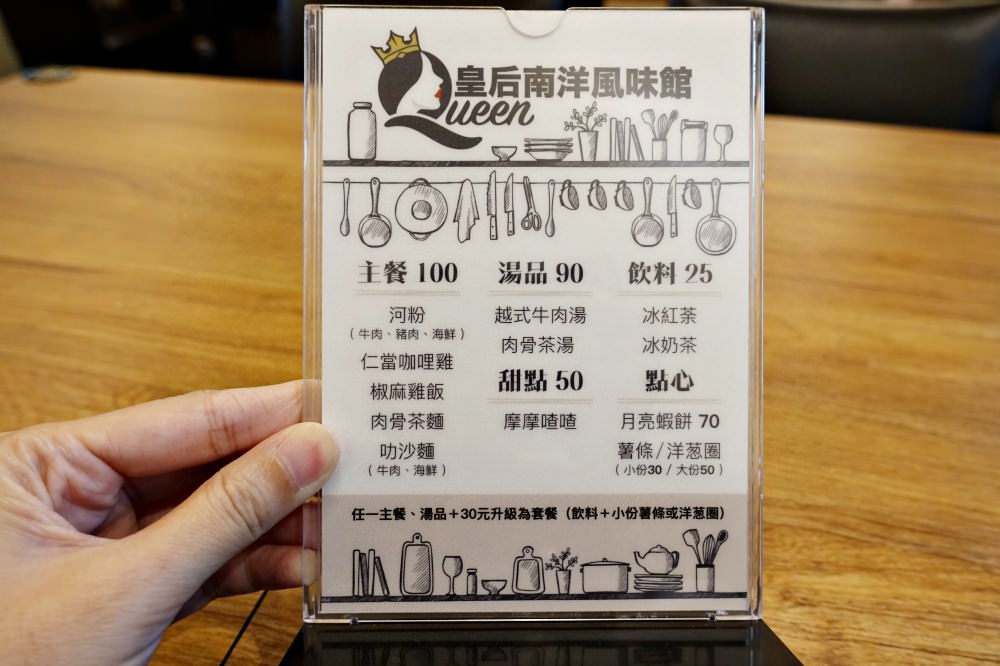 皇后南洋風味館
Queen
主餐 100
河粉
（牛肉、豬肉、海鮮）
仁當咖哩雞
椒麻雞飯
肉骨茶麵
叻沙麵
（牛肉、海鮮）
湯品 90
越式牛肉湯
肉骨茶湯
甜點 50
摩摩喳喳
飲料 25
冰紅茶
冰奶茶
點心
月亮蝦餅 70
薯條/洋葱圈
（小份30 / 大份50）
任一主餐、湯品＋30元升級為套餐（飲料＋小份薯條或洋葱圈）